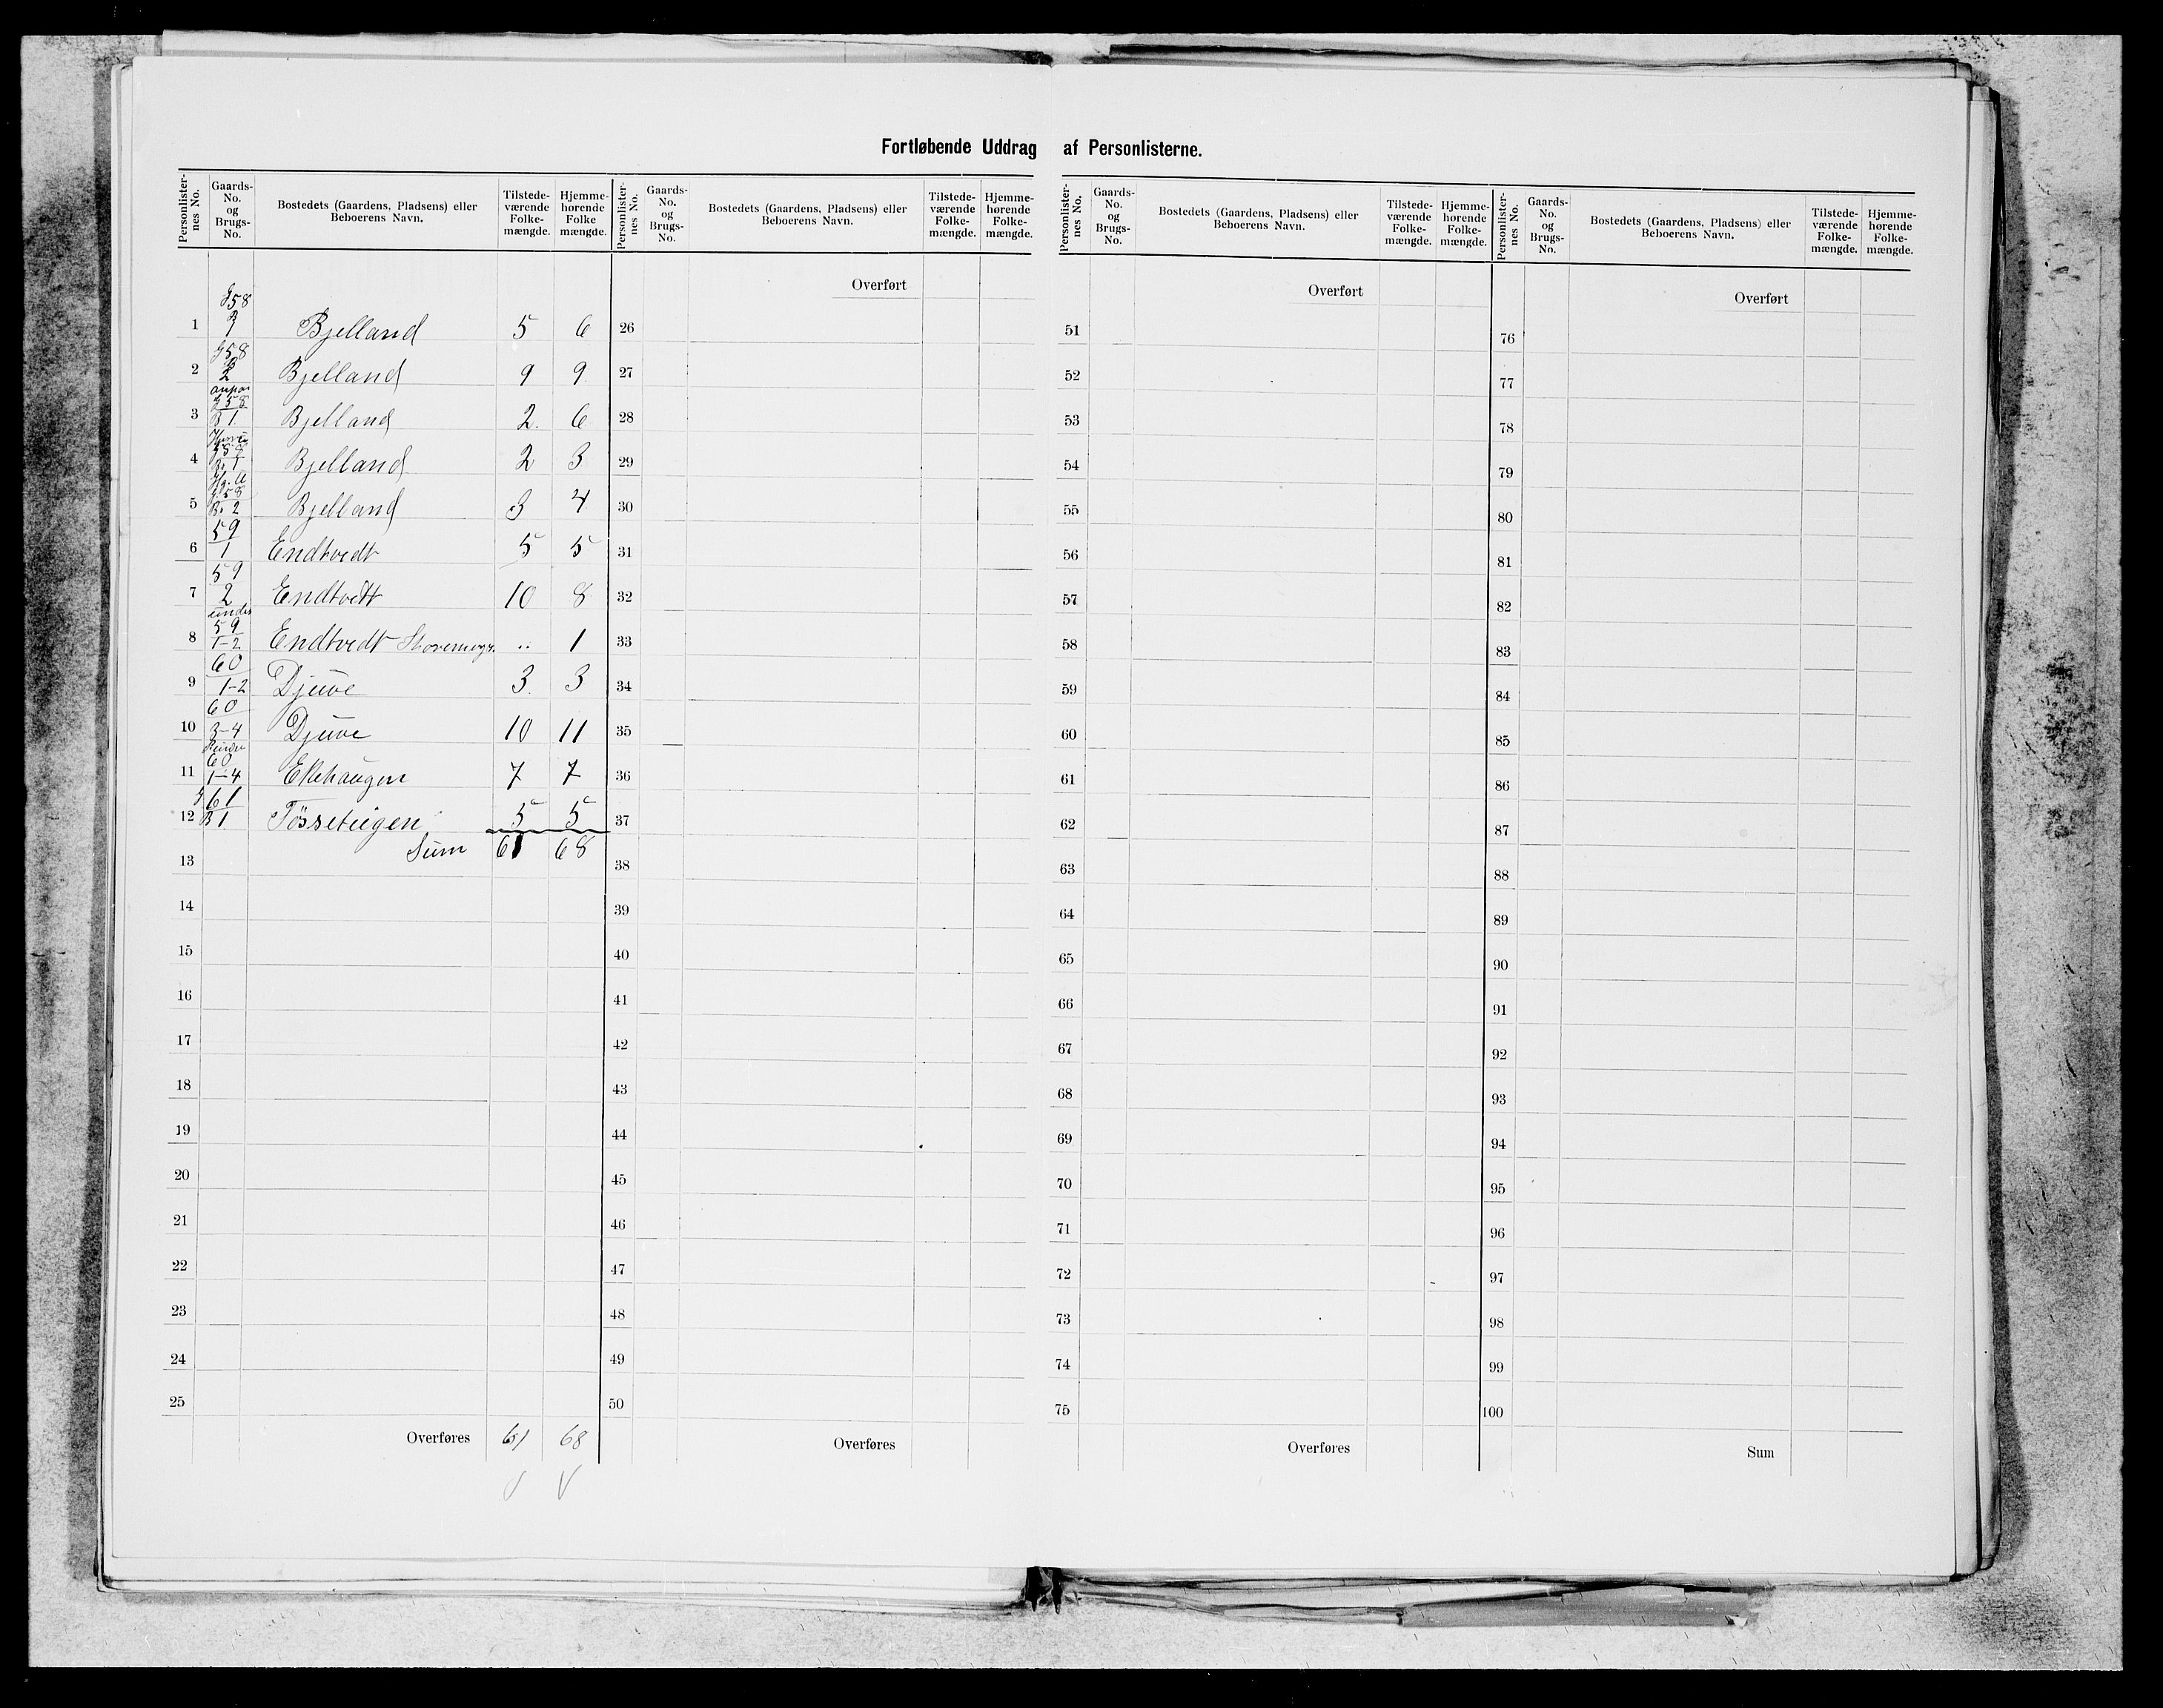 Fortløbende Uddrag af Personlisterne.
Personlister-nes No. | Gaards-No. og Brugs-No. | Bostedets (Gaardens, Pladsens) eller Beboerens Navn. | Tilstede-værende Folke-mængde. | Hjemme-hørende Folke mængde.
1 | G 58 B | Bjelland | 5 | 6
2 | G 58 B 2 | Bjelland | 9 | 9
3 | G 58 B 1 | Bjelland | 2. | 6
4 | G 58 Br 1 | Bjelland | 2 | 3
5 | G. 58 Br 2 | Bjelland | 3 | 4
6 | 59 1 | Endtvedt | 5 | 5
7 | 59 2 | Endtvedt | 10 | 8
8 | under 59 1-2 | Endtvedt | .. | 1
9 | 60 1-2 | Djuve | 3. | 3
10 | 60 3-4 | Djuve | 10 | 11
11 | 60 1-4 | Ekehaugen | 7 | 7
12 | G 61 B 1 | Tøsseteigen | 5 | 5
Sum | 61 | 68
13
14
15
16
17
18
19
20
21
22
23
24
25
Overføres | 61 | 68
Personlister-nes No. | Gaards-No. og Brugs-No. | Bostedets (Gaardens, Pladsens) eller Beboerens Navn. | Tilstede-værende Folke-mængde. | Hjemme-hørende Folke-mængde.
Overført
26
27
28
29
30
31
32
33
34
35
36
37
38
39
40
41
42
43
44
45
46
47
48
49
50
Overføres
Personlister-nes No. | Gaards-No. og Brugs-No. | Bostedets (Gaardens, Pladsens) eller Beboerens Navn. | Tilstede-værende Folke-mængde. | Hjemme-hørende Folke-mængde.
Overført
51
52
53
54
55
56
57
58
59
60
61
62
63
64
65
66
67
68
69
70
71
72
73
74
75
Overføres
Personlister-nes No. | Gaards-No. og Brugs-No. | Bostedets (Gaardens, Pladsens) eller Beboerens Navn. | Tilstede-værende Folke-mængde. | Hjemme-hørende Folke-mængde.
Overført
76
77
78
79
80
81
82
83
84
85
86
87
88
89
90
91
92
93
94
95
96
97
98
99
100
Sum